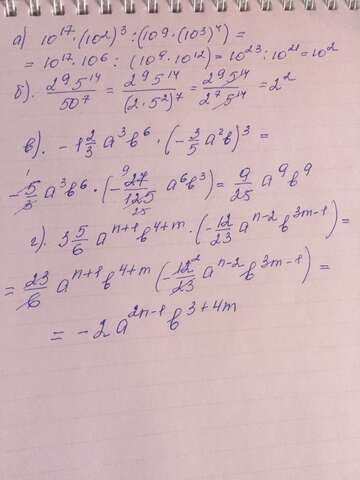 а) 10¹⁷ · (10²)³ : (10⁹ · (10³)⁴) =
= 10¹⁷ · 10⁶ : (10⁹ · 10¹²) = 10²³ : 10²¹ = 10²
б). 2⁹5¹⁴/50⁷ = 2⁹5¹⁴/(2·5²)⁷ = 2⁹5¹⁴/2⁷5¹⁴ = 2²
в). -1 2/3 a³b⁶ · (-3/5 a²b)³ =
-5/3 a³b⁶ · (-27/125 a⁶b³) = 9/25 a⁹b⁹
г). 3 5/6 aⁿ⁺¹b⁴⁺ᵐ · (-12/23 aⁿ⁻²b³ᵐ⁻¹) =
= 23/6 aⁿ⁺¹b⁴⁺ᵐ (-12/23 aⁿ⁻²b³ᵐ⁻¹) =
= -2a²ⁿ⁻¹b³⁺⁴ᵐ